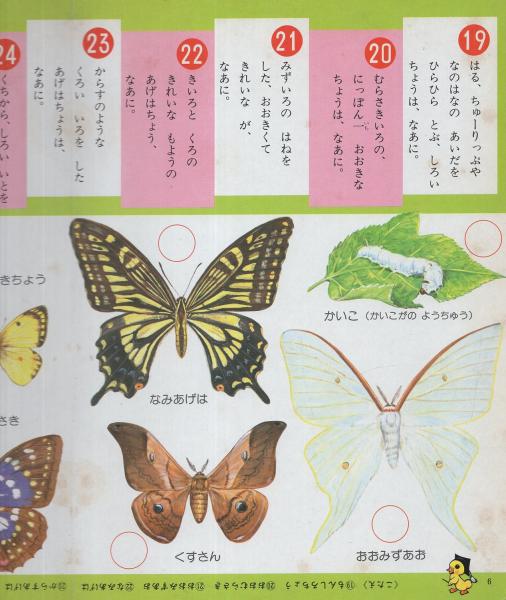 19
はる、ちゅーりっぷや
なのはなの あいだを
ひらひら とぶ、しろい
ちょうは、なあに。
20
むらさきいろの、
にっぽん一 おおきな
ちょうは、なあに。
21
みずいろの はねを
した、おおきくて
きれいな が、
なあに。
22
きいろと くろの
きれいな もようの
あげはちょう、
なあに。
23
からすのような
くろい いろを した
あげはちょうは、
なあに。
24
くちから、しろい いとを
かいこ (かいこがの ようちゅう)
きちょう
なみあげは
さき
くすさん
おおみずあお
〈こたえ〉 ⑲もんしろちょう ⑳おおむらさき ㉑おおみずあお ㉒なみあげは ㉓からすあげは
6